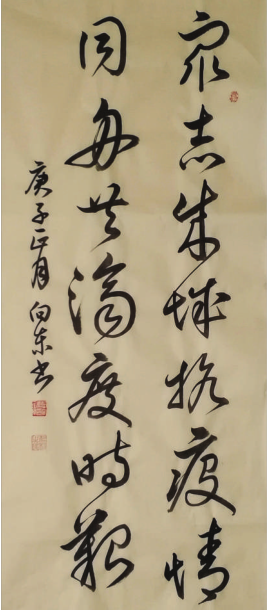 众志成城抗疫情
同舟共济度时艰
庚子正月向东书